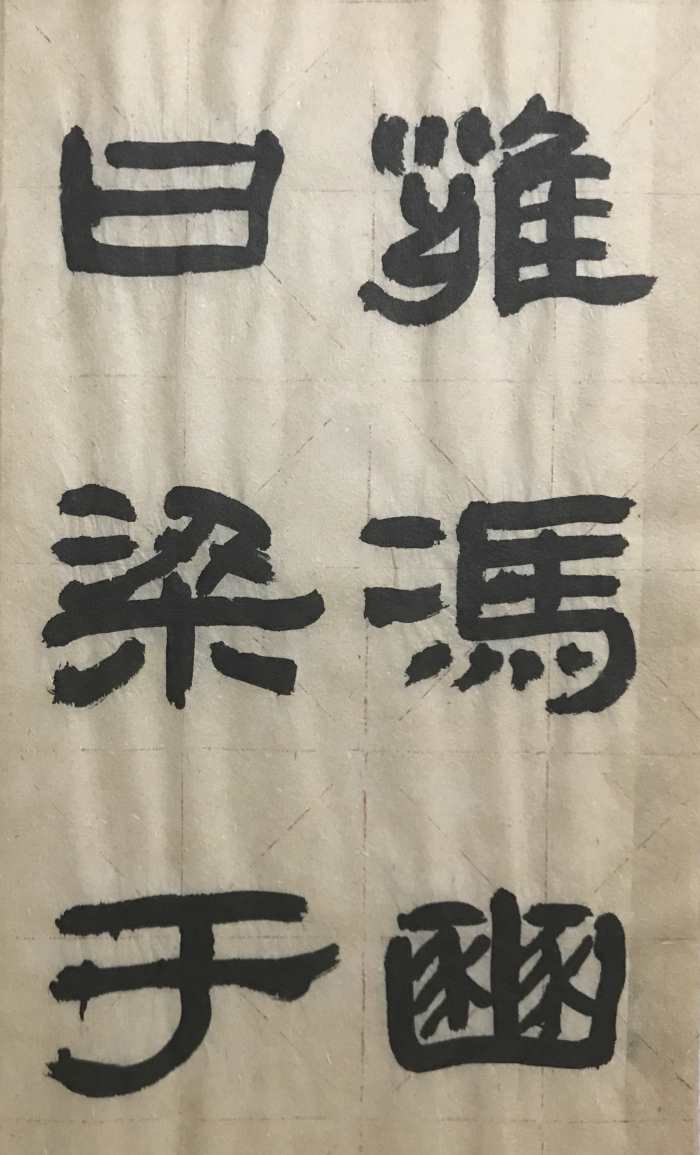 曰雍
梁馮
于豳